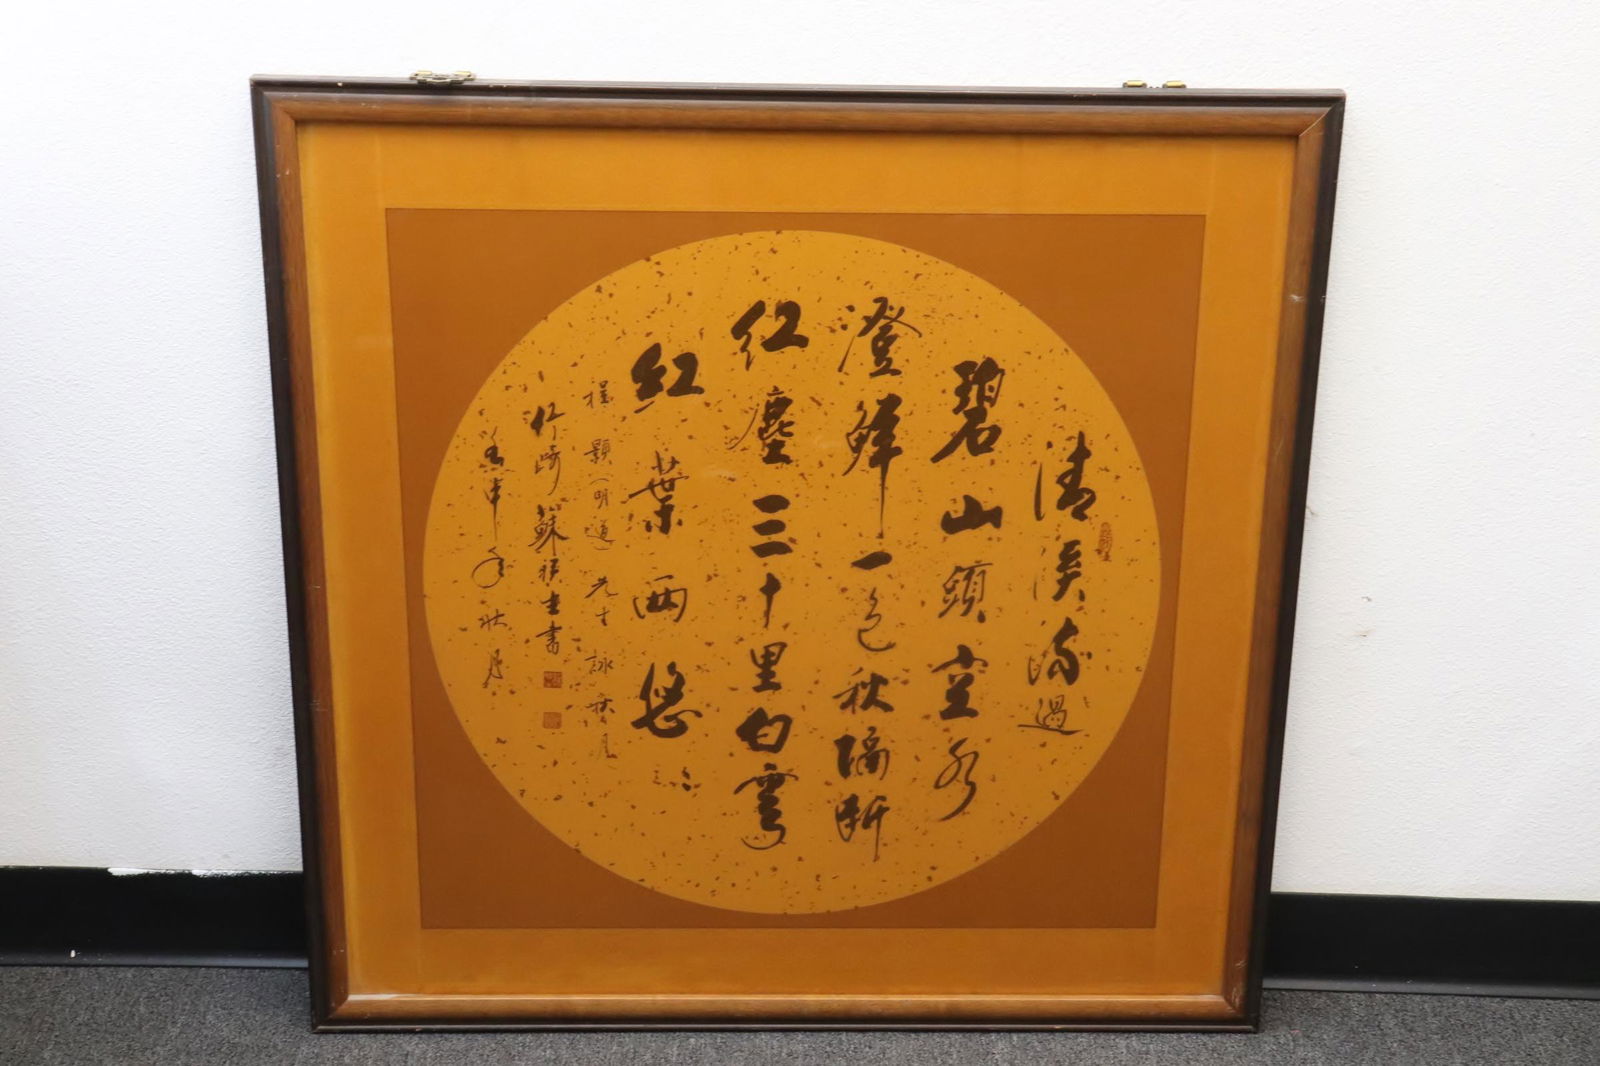 清溪流過
碧山頭空水
澄鮮一色秋隔斷
紅塵三十里白雲
紅葉兩悠悠
程顥(明道)先生詠秋月
竹崎蘇
書
壬申年秋月